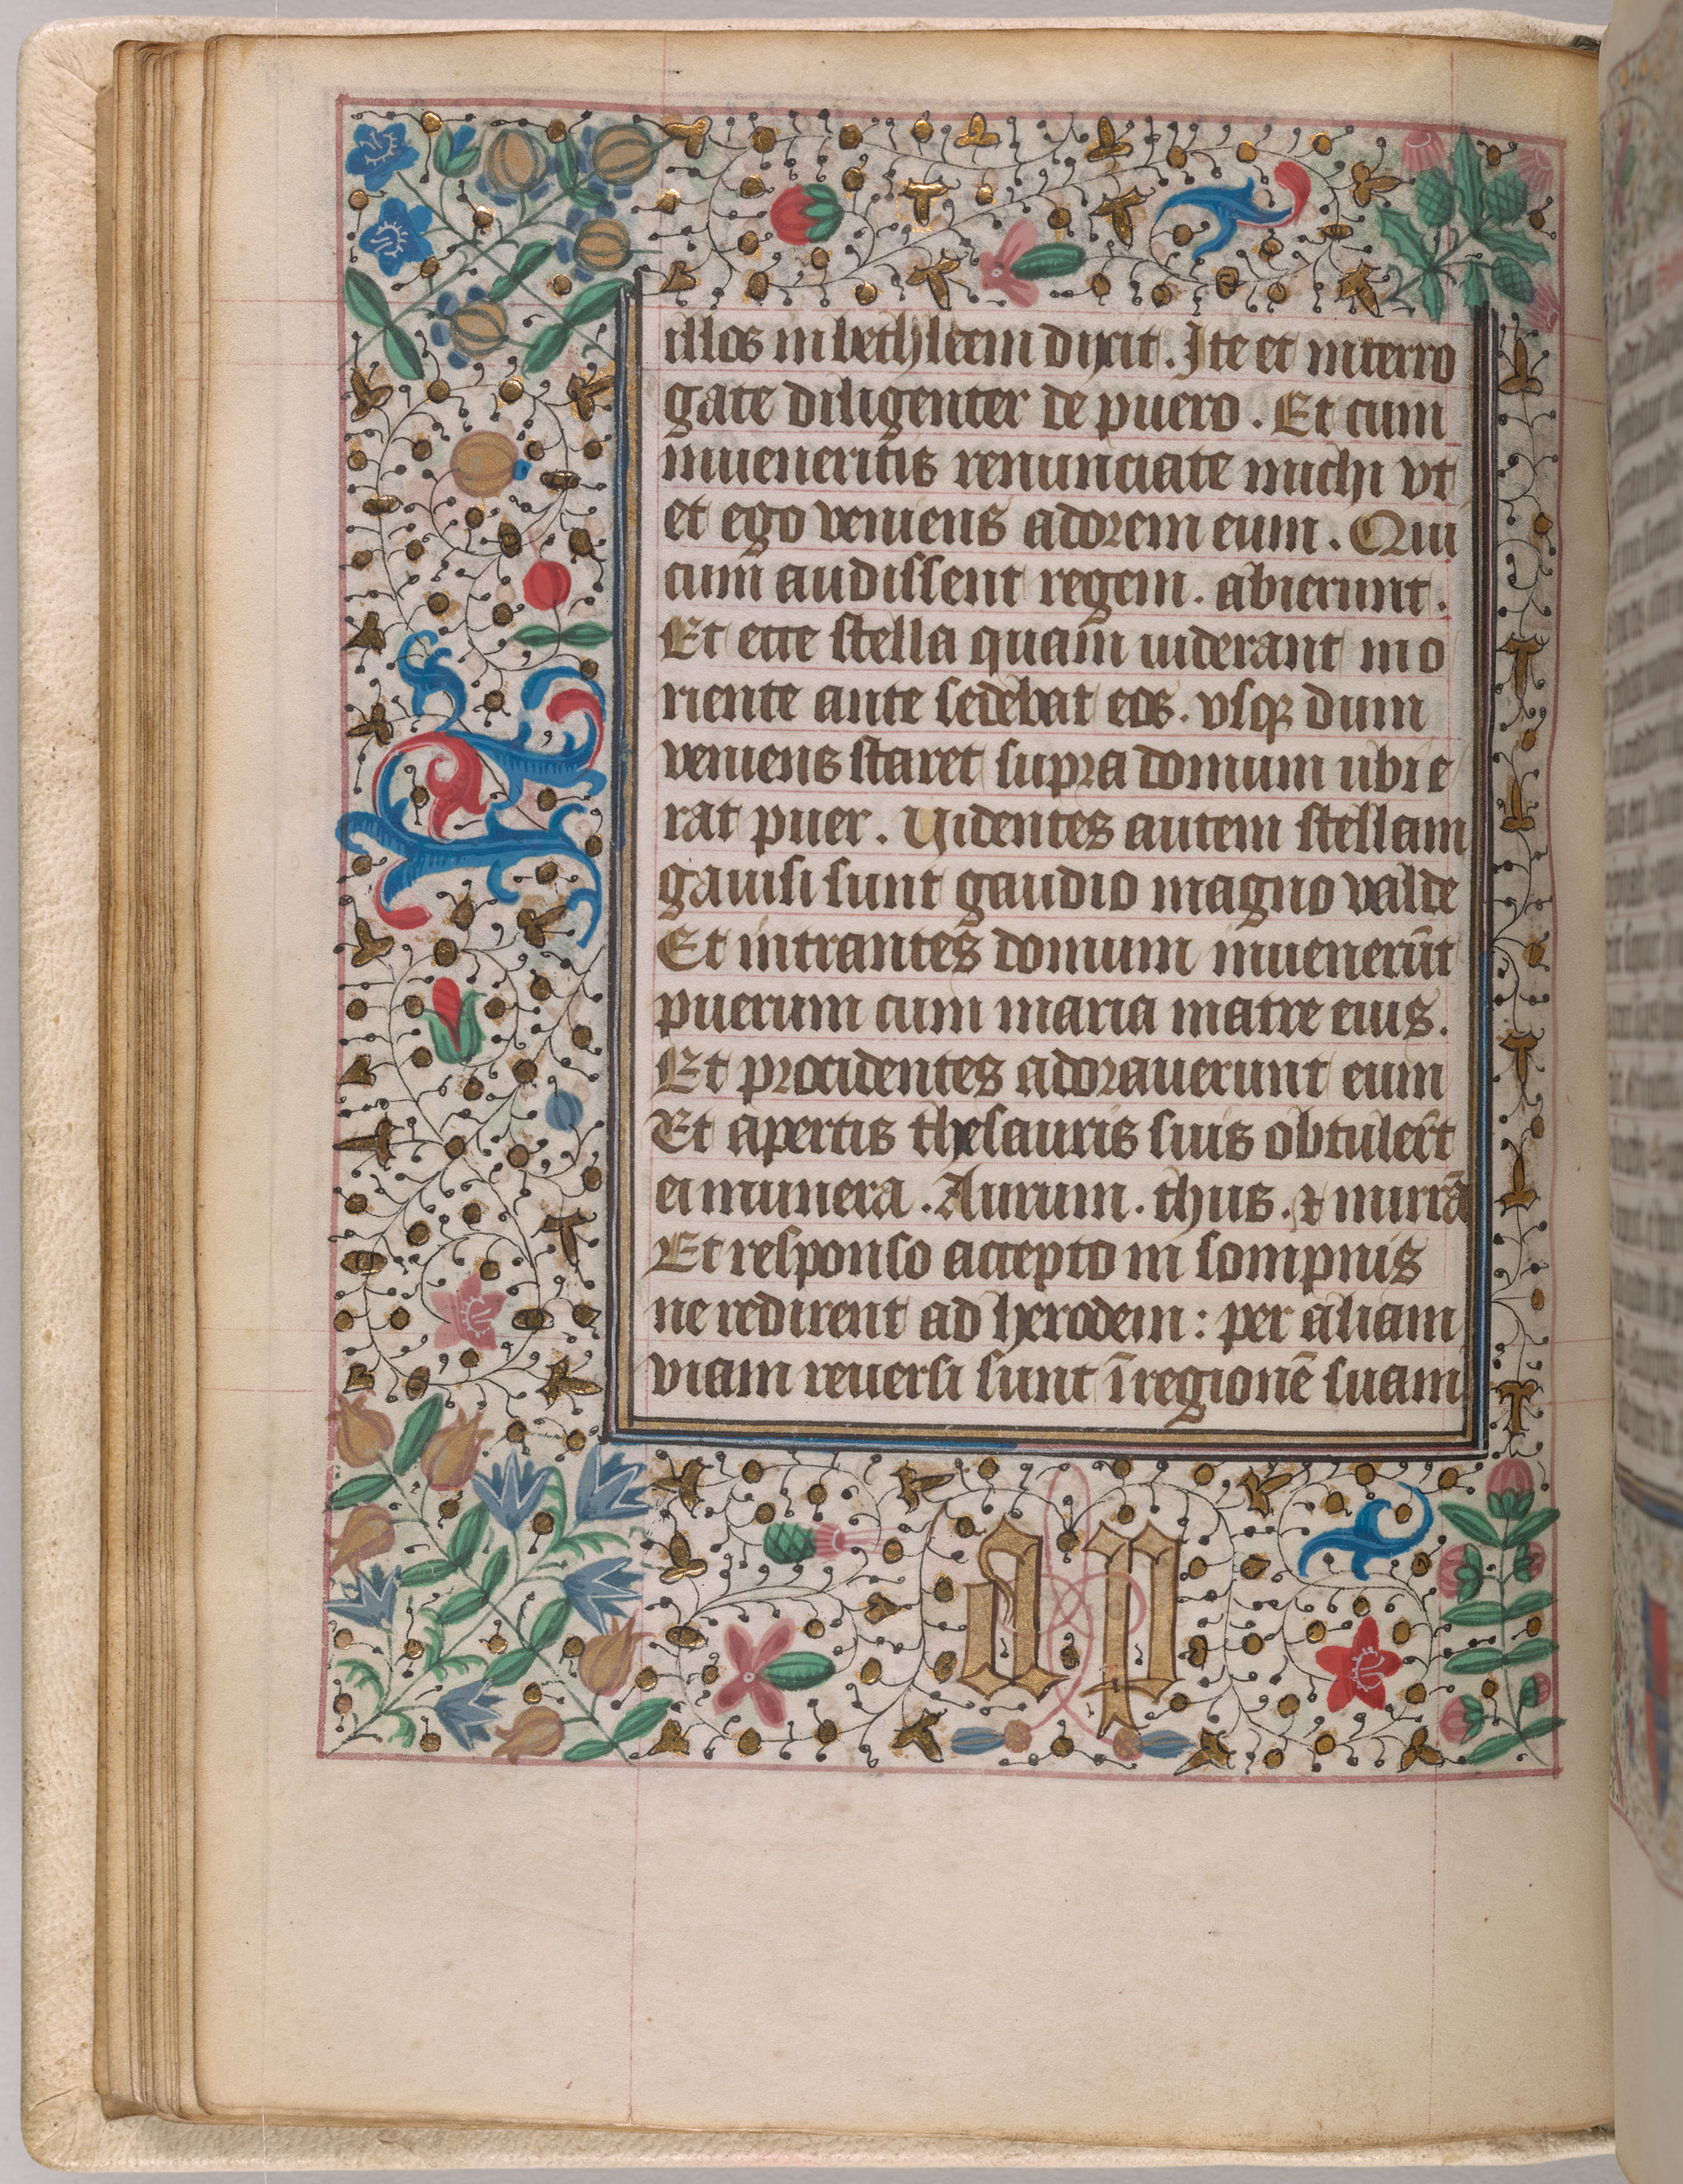 illos in bethleem dixit. Ite et interro
gate diligenter de puero. Et cum
inueneritis renunciate michi vt
et ego veniens adorem eum. Qui
cum audissent regem. abierunt.
Et ecce stella quam uiderant in o
riente ante sedebat eos. vsqꝫ dum
veniens staret supra domum ubi e
rat puer. Uidentes autem stellam
gauisi sunt gaudio magno valde
Et intrantes domum inuenerūt
puerum cum maria matre eius.
Et procidentes adorauerunt eum
Et apertis thesauris suis obtulert̄
ei munera. Aurum. thus. ⁊ mirrā
Et responso accepto in sompnis
ne redirent ad herodem: per aliam
viam reuersi sunt ī regionē suam